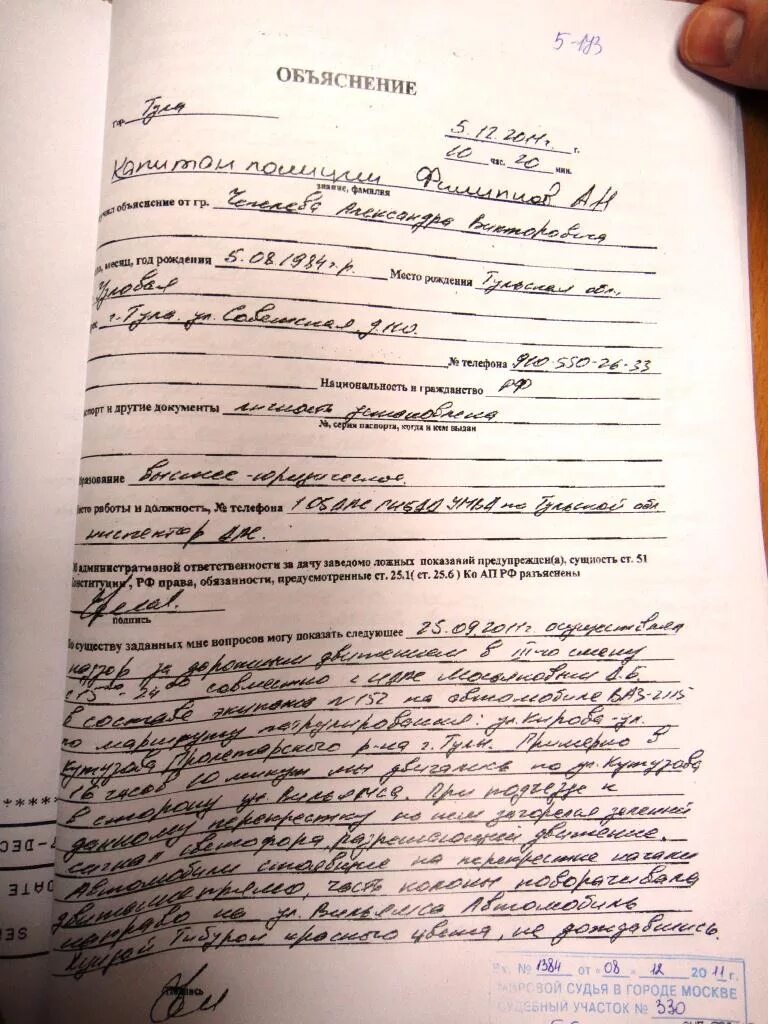 5-173
ОБЪЯСНЕНИЕ
гор. Тула
5.12.2011г. г.
10 час. 20 мин.
Капитан полиции Филиппов АН
звание, фамилия
объяснение от гр. Александра Викторовича
месяц, год рождения 5.08.1984г.р. Место рождения Тульская обл.
Узловая
г. Тула. ул. Советская
№ телефона 910-550-26-33
Национальность и гражданство РФ
и другие документы личность установлена
№, серия паспорта, когда и кем выдан
высшее-юридическое.
работы и должность, № телефона ГИБДД УМВД по Тульской обл.
инспектор ДПС.
административной ответственности за дачу заведомо ложных показаний предупрежден(а), сущность ст. 51
Конституции, РФ права, обязанности, предусмотренные ст. 25.1( ст. 25.6 ) Ко АП РФ разъяснены
подпись
существу заданных мне вопросов могу показать следующее 25.09.2011г. осуществлял
надзор за дорожным движением в III-ю смену
совместно с ИДПС
в составе экипажа №152 на автомобиле ВАЗ-2115
по маршруту патрулирования: ул. Кирова-ул.
Кутузова Пролетарского р-на г. Тулы. Примерно в
18 часов 10 минут мы двигались по ул. Кутузова
в сторону ул. Вильямса. При подъезде к
данному перекрестку на нем загорелся зеленый
сигнал светофора, разрешающий движение.
Автомобили стоявшие на перекрестке начали
движение прямо, часть колоны поворачивала
направо на ул. Вильямса Автомобиль
Хундай Тибурон красного цвета, не дождавшись.
подпись
Вх. № 1384 от «08» 12 2011 г.
МИРОВОЙ СУДЬЯ В ГОРОДЕ МОСКВЕ
СУДЕБНЫЙ УЧАСТОК № 330
DATE